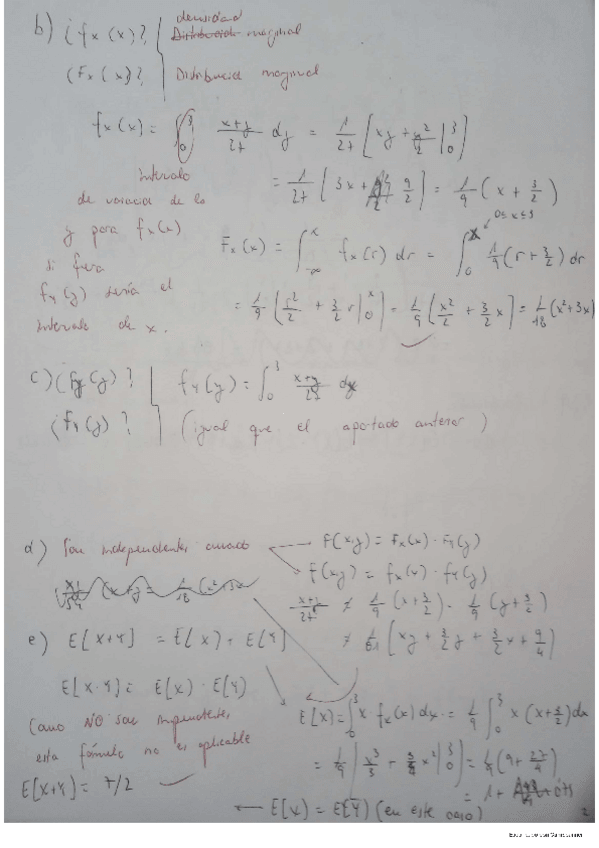 b) ¿fx(x)? densidad marginal
¿Fx(x)? Distribución marginal
fx(x) = ∫₀³ (x+y)/27 dy = 1/27 [xy + y²/2 |₀³
= 1/27 [3x + 9/2] = 1/9 (x + 3/2)
Intervalo
de variación de la
y para fx(x)
si fuera
fy(y) sería el
intervalo de x.
0≤x≤3
Fx(x) = ∫₋∞ˣ fx(r) dr = ∫₀ˣ 1/9 (r + 3/2) dr
= 1/9 [r²/2 + 3/2 r |₀ˣ = 1/9 [x²/2 + 3/2 x] = 1/18 (x²+3x)
c) ¿fy(y)? fY(y) = ∫₀³ (x+y)/27 dx
¿FY(y)? (igual que el apartado anterior)
d) Son independientes cuando F(x,y) = Fx(x) · FY(y)
f(x,y) = fx(x) · fY(y)
(x+y)/27 ≠ 1/9 (x+3/2) · 1/9 (y+3/2)
≠ 1/81 [xy + 3/2 y + 3/2 x + 9/4]
e) E[X+Y] = E[X] + E[Y]
E[X·Y] = E[X) · E[Y)
Como NO son
esta fórmula no es aplicable
E[X] = ∫₀³ x · fx(x) dx = 1/9 ∫₀³ x (x+3/2) dx
= 1/9 [x³/3 + 3/4 x² |₀³] = 1/9 (9 + 27/4)
= 1 + 0'75
E[X+Y] = 7/2
E[X) = E[Y) (en este caso)
2